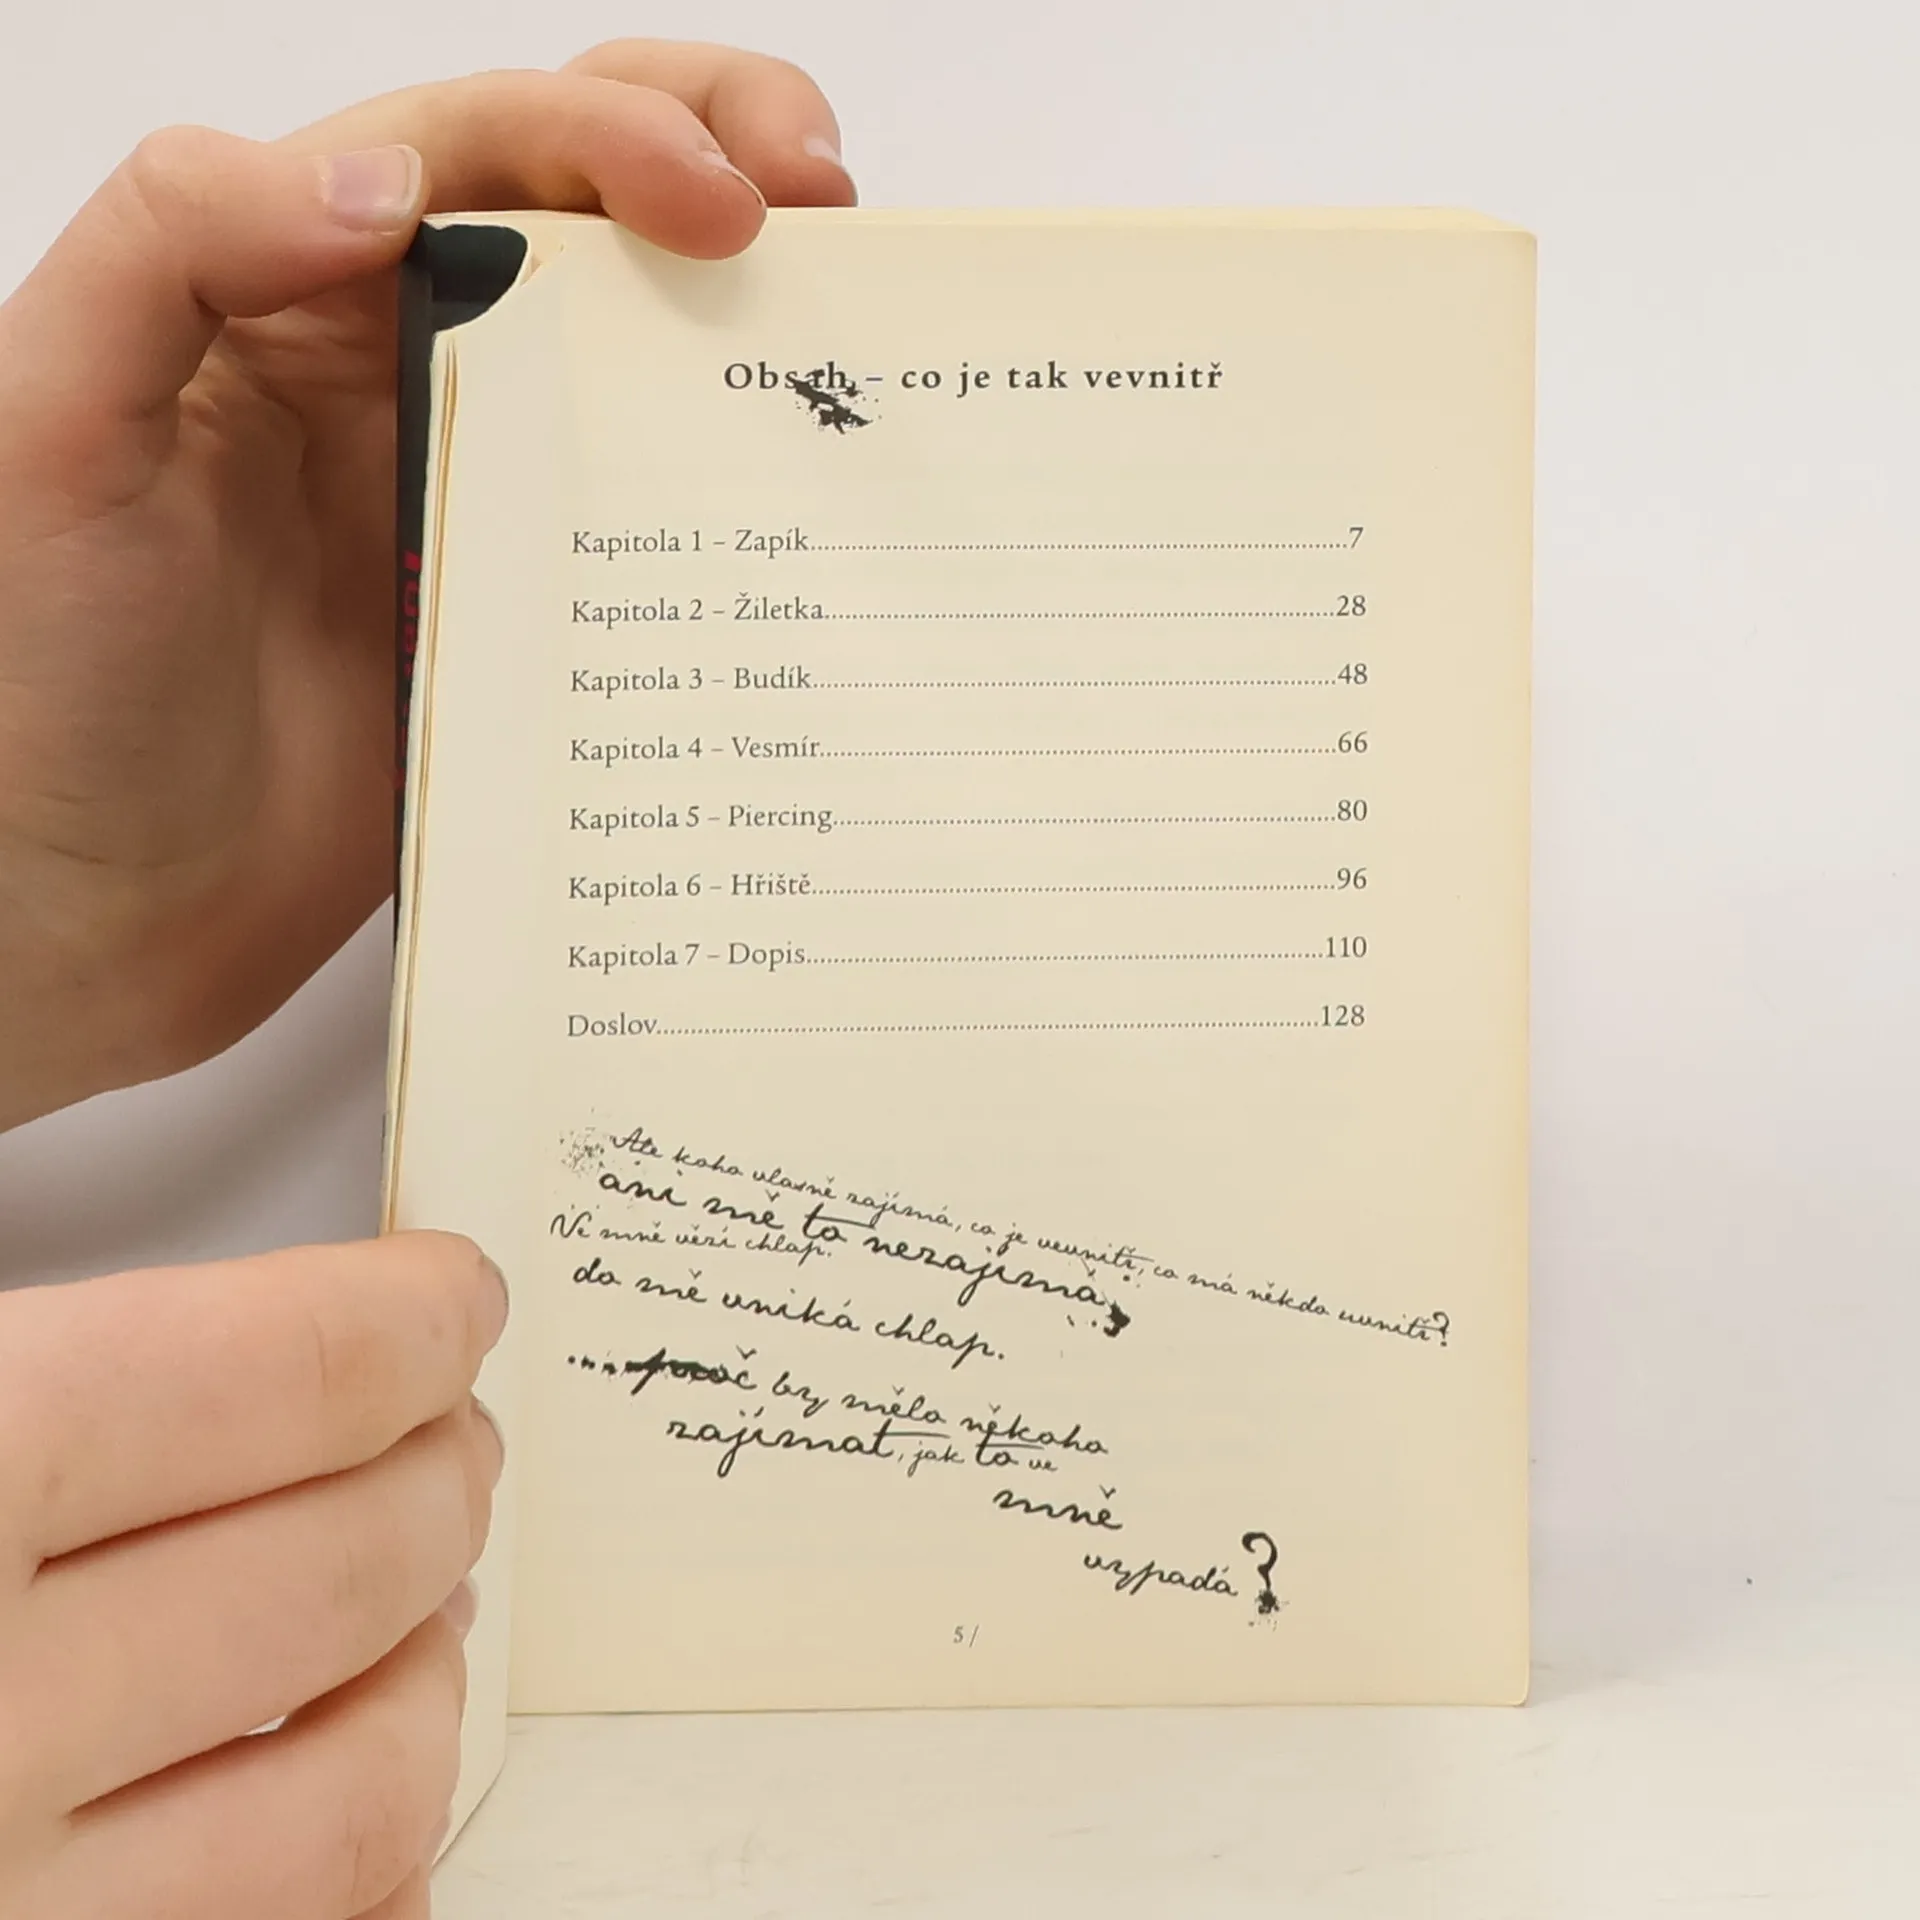 Obsah – co je tak vevnitř
Kapitola 1 – Zapík.......7
Kapitola 2 – Žiletka.......28
Kapitola 3 – Budík.......48
Kapitola 4 – Vesmír.......66
Kapitola 5 – Piercing.......80
Kapitola 6 – Hřiště.......96
Kapitola 7 – Dopis.......110
Doslov.......128
Ale koho vlasně zajímá, co je vevnitř, co má někdo uvnitř?
ani mě to nezajímá,
Ve mně vězí chlap.
do mě uniká chlap.
... proč by mělo někoho
zajímat, jak to ve
mně
vypadá?
5 /